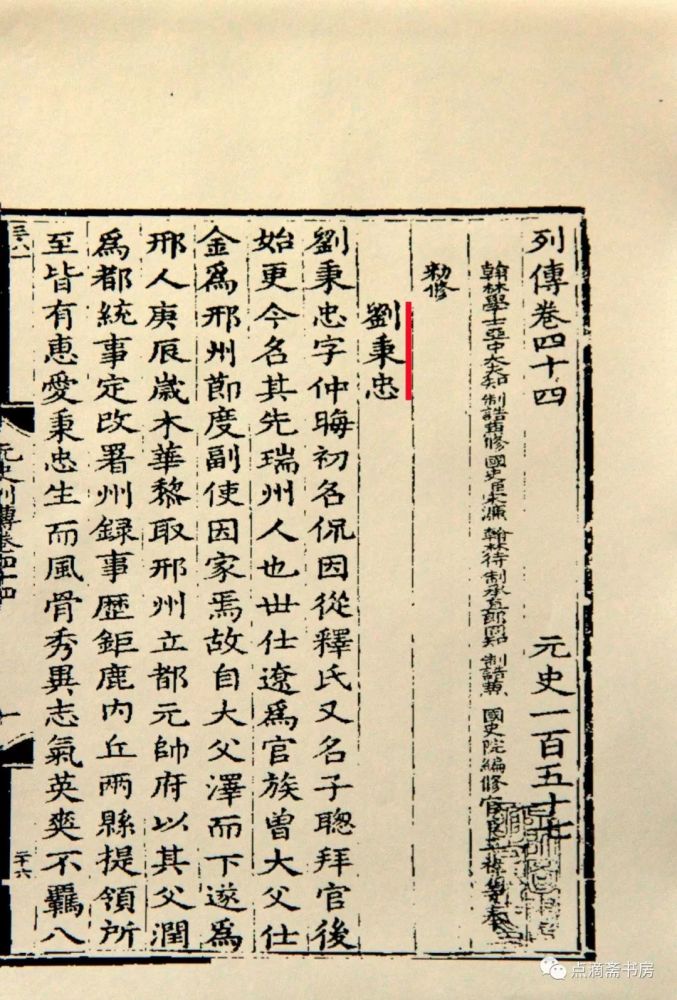 列傳卷四十四 元史一百五十七
翰林學士亞中大夫知制誥兼修國史臣宋濂 翰林待制承直郎同知制誥兼國史院編修官臣王禕等奉
勑修
劉秉忠
劉秉忠字仲晦初名侃因從釋氏又名子聰拜官後
始更今名其先瑞州人也世仕遼爲官族曾大父仕
金爲邢州節度副使因家焉故自大父澤而下遂爲
邢人庚辰歲木華黎取邢州立都元帥府以其父潤
爲都統事定改署州録事歷鉅鹿内丘兩縣提領所
至皆有惠愛秉忠生而風骨秀異志氣英爽不羈八
元史列傳卷四十四
一
点滴斋书房